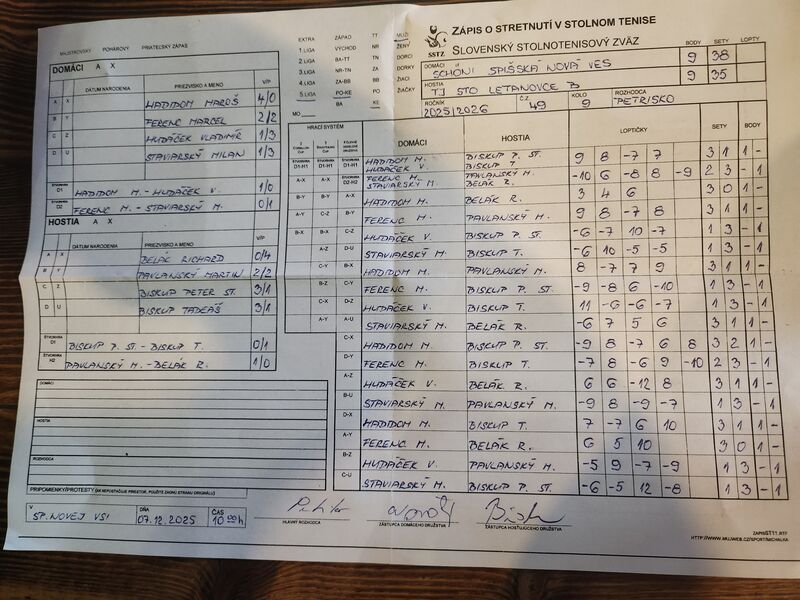 MAJSTROVSKÝ POHÁROVÝ PRIATEĽSKÝ ZÁPAS
EXTRA ZÁPAD TT MUŽI
1.LIGA VÝCHOD NR ŽENY
2.LIGA BA-TT TN DORKY
3.LIGA NR-TN ZA DORCI
4.LIGA ZA-BB BB ŽIACI
5.LIGA PO-KE PO ŽIAČKY
BA KE
MO
SSTZ
ZÁPIS O STRETNUTÍ V STOLNOM TENISE
SLOVENSKÝ STOLNOTENISOVÝ ZVÄZ
BODY SETY LOPTY
DOMÁCI SCHÖNI SPIŠSKÁ NOVÁ VES 9 38
HOSTIA TJ STO LETANOVCE B 9 35
ROČNÍK 2025/2026 Č.Z. 49 KOLO 9 ROZHODCA PETRISKO
DOMÁCI A X
DÁTUM NARODENIA PRIEZVISKO A MENO V/P
A X HADIDOM MAROŠ 4/0
B Y FERENC MARCEL 2/2
C Z HUDÁČEK VLADIMÍR 1/3
D U STAVIARSKÝ MILAN 1/3
ŠTVORHRA D1 HADIDOM M. - HUDÁČEK V. 1/0
ŠTVORHRA D2 FERENC M. - STAVIARSKÝ M. 0/1
HOSTIA A X
DÁTUM NARODENIA PRIEZVISKO A MENO V/P
A X BELÁK RICHARD 0/4
B Y PAVLANSKÝ MARTIN 2/2
C Z BISKUP PETER ST. 3/1
D U BISKUP TADEÁŠ 3/1
ŠTVORHRA D1 BISKUP P. ST. - BISKUP T. 0/1
ŠTVORHRA H2 PAVLANSKÝ M. - BELÁK R. 1/0
HRACÍ SYSTÉM DOMÁCI HOSTIA LOPTIČKY SETY BODY
D1-H1 D1-H1 D1-H1 HADIDOM M. HUDÁČEK V. BISKUP P. ST. BISKUP T. 9 8 -7 7 3 1 1 -
A-X A-X D2-H2 FERENC M. STAVIARSKÝ M. PAVLANSKÝ M. BELÁK R. -10 6 -8 8 -9 2 3 - 1
B-Y B-Y A-X HADIDOM M. BELÁK R. 3 4 6 3 0 1 -
A-Y C-Z B-Y FERENC M. PAVLANSKÝ M. 9 8 -7 8 3 1 1 -
B-X B-X C-Z HUDÁČEK V. BISKUP P. ST. -6 -7 10 -7 1 3 - 1
A-Z D-U STAVIARSKÝ M. BISKUP T. -6 10 -5 -5 1 3 - 1
C-Y B-X HADIDOM M. PAVLANSKÝ M. 8 -7 7 9 3 1 1 -
B-Z C-Y FERENC M. BISKUP P. ST. -9 -8 6 -10 1 3 - 1
C-X D-Z HUDÁČEK V. BISKUP T. 11 -6 -6 -7 1 3 - 1
A-Y A-U STAVIARSKÝ M. BELÁK R. -6 7 5 6 3 1 1 -
C-X HADIDOM M. BISKUP P. ST. -9 8 -7 6 8 3 2 1 -
D-Y FERENC M. BISKUP T. -7 8 -6 9 -10 2 3 - 1
A-Z HUDÁČEK V. BELÁK R. 6 6 -12 8 3 1 1 -
B-U STAVIARSKÝ M. PAVLANSKÝ M. -9 8 -9 -7 1 3 - 1
D-X HADIDOM M. BISKUP T. 7 -7 6 10 3 1 1 -
A-Y FERENC M. BELÁK R. 6 5 10 3 0 1 -
B-Z HUDÁČEK V. PAVLANSKÝ M. -5 9 -7 -9 1 3 - 1
C-U STAVIARSKÝ M. BISKUP P. ST. -6 -5 12 -8 1 3 - 1
DOMÁCI
HOSTIA
ROZHODCA
PRIPOMIENKY/PROTESTY (AK NEPOSTAČUJE PRIESTOR, POUŽITE ZADNÚ STRANU ORIGINÁLU)
V SP. NOVEJ VSI DŇA 07.12.2025 ČAS 10 00 h
HLAVNÝ ROZHODCA ZÁSTUPCA DOMÁCEHO DRUŽSTVA ZÁSTUPCA HOSŤUJÚCEHO DRUŽSTVA
ZAPISST11.RTF
HTTP://WWW.MUJWEB.CZ/SPORT/MICHALKA